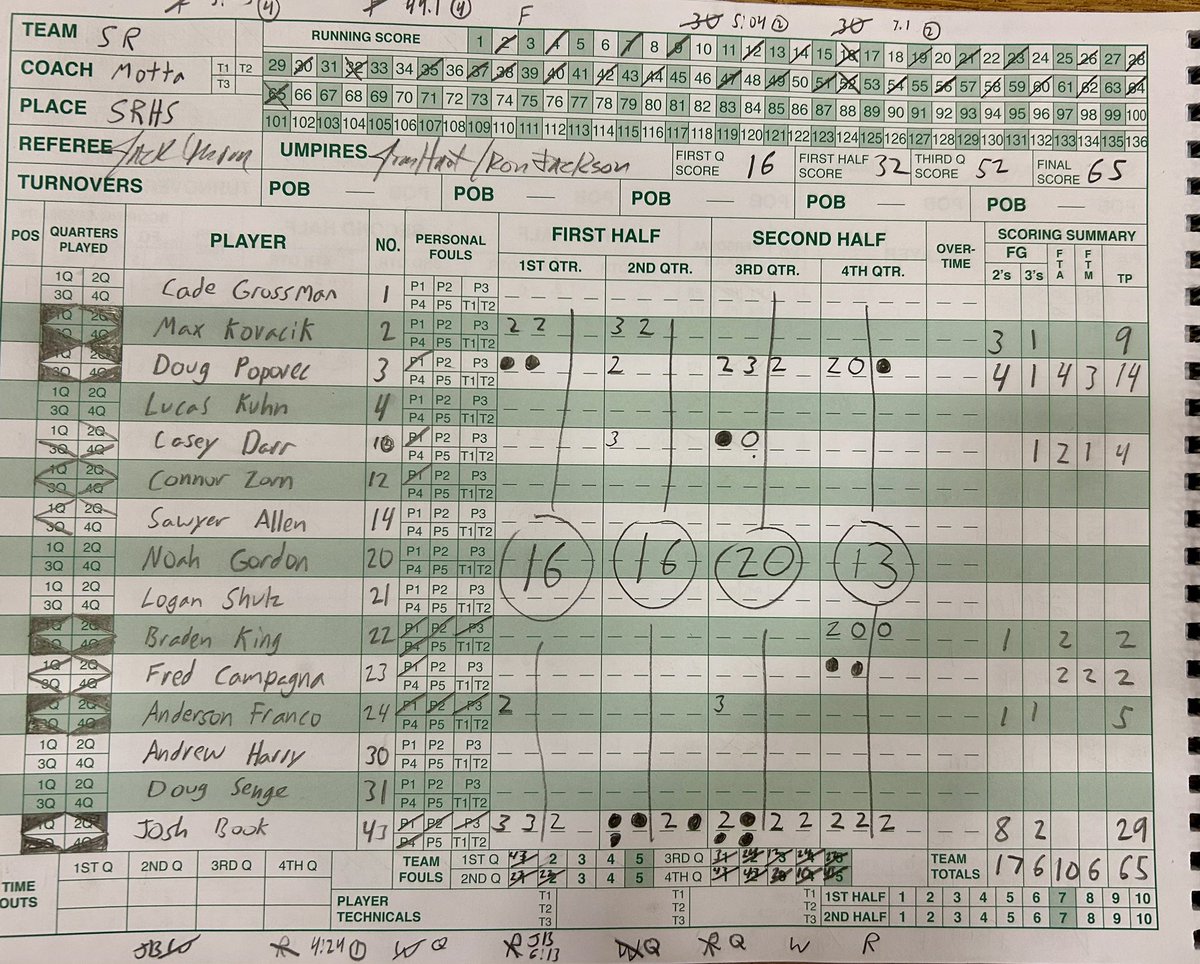 44.1 (4) F 30 5:04 (2) 30 7.1 (2)
TEAM SR
RUNNING SCORE 1 2 3 4 5 6 7 8 9 10 11 12 13 14 15 16 17 18 19 20 21 22 23 24 25 26 27 28
COACH Motta T1 T2 T3
29 30 31 32 33 34 35 36 37 38 39 40 41 42 43 44 45 46 47 48 49 50 51 52 53 54 55 56 57 58 59 60 61 62 63 64
65 66 67 68 69 70 71 72 73 74 75 76 77 78 79 80 81 82 83 84 85 86 87 88 89 90 91 92 93 94 95 96 97 98 99 100
PLACE SRHS
101 102 103 104 105 106 107 108 109 110 111 112 113 114 115 116 117 118 119 120 121 122 123 124 125 126 127 128 129 130 131 132 133 134 135 136
REFEREE Jack UMPIRES / Ron Jackson FIRST Q SCORE 16 FIRST HALF SCORE 32 THIRD Q SCORE 52 FINAL SCORE 65
TURNOVERS POB — POB — POB — POB — POB —
POS QUARTERS PLAYED PLAYER NO. PERSONAL FOULS FIRST HALF SECOND HALF OVER-TIME SCORING SUMMARY
1ST QTR. 2ND QTR. 3RD QTR. 4TH QTR. FG 2's 3's FTA FTM TP
1Q 2Q 3Q 4Q Cade Grossman 1 P1 P2 P3 P4 P5 T1 T2
1Q 2Q 3Q 4Q Max Kovacik 2 P1 P2 P3 P4 P5 T1 T2 2 2 3 2 3 1 9
1Q 2Q 3Q 4Q Doug Popovec 3 P1 P2 P3 P4 P5 T1 T2 2 2 3 2 2 0 4 1 4 3 14
1Q 2Q 3Q 4Q Lucas Kuhn 4 P1 P2 P3 P4 P5 T1 T2
1Q 2Q 3Q 4Q Casey Darr 10 P1 P2 P3 P4 P5 T1 T2 3 0 1 2 1 4
1Q 2Q 3Q 4Q Connor Zorn 12 P1 P2 P3 P4 P5 T1 T2
1Q 2Q 3Q 4Q Sawyer Allen 14 P1 P2 P3 P4 P5 T1 T2
1Q 2Q 3Q 4Q Noah Gordon 20 P1 P2 P3 P4 P5 T1 T2 16 16 20 13
1Q 2Q 3Q 4Q Logan Shulz 21 P1 P2 P3 P4 P5 T1 T2
1Q 2Q 3Q 4Q Braden King 22 P1 P2 P3 P4 P5 T1 T2 2 0 0 1 2 2
1Q 2Q 3Q 4Q Fred Campagna 23 P1 P2 P3 P4 P5 T1 T2 2 2 2
1Q 2Q 3Q 4Q Anderson Franco 24 P1 P2 P3 P4 P5 T1 T2 2 3 1 1 5
1Q 2Q 3Q 4Q Andrew Harry 30 P1 P2 P3 P4 P5 T1 T2
1Q 2Q 3Q 4Q Doug Senge 31 P1 P2 P3 P4 P5 T1 T2
1Q 2Q 3Q 4Q Josh Book 43 P1 P2 P3 P4 P5 T1 T2 3 3 2 2 2 2 2 2 2 2 8 2 29
TIME OUTS 1ST Q 2ND Q 3RD Q 4TH Q TEAM FOULS 1ST Q 2 3 4 5 3RD Q TEAM TOTALS 17 6 10 6 65
2ND Q 3 4 5 4TH Q
PLAYER TECHNICALS T1 T2 T3 T1 T2 T3 T1 T2 T3 1ST HALF 1 2 3 4 5 6 7 8 9 10
2ND HALF 1 2 3 4 5 6 7 8 9 10
R 4:24 (1) W Q R JB 6:13 W Q R Q W R